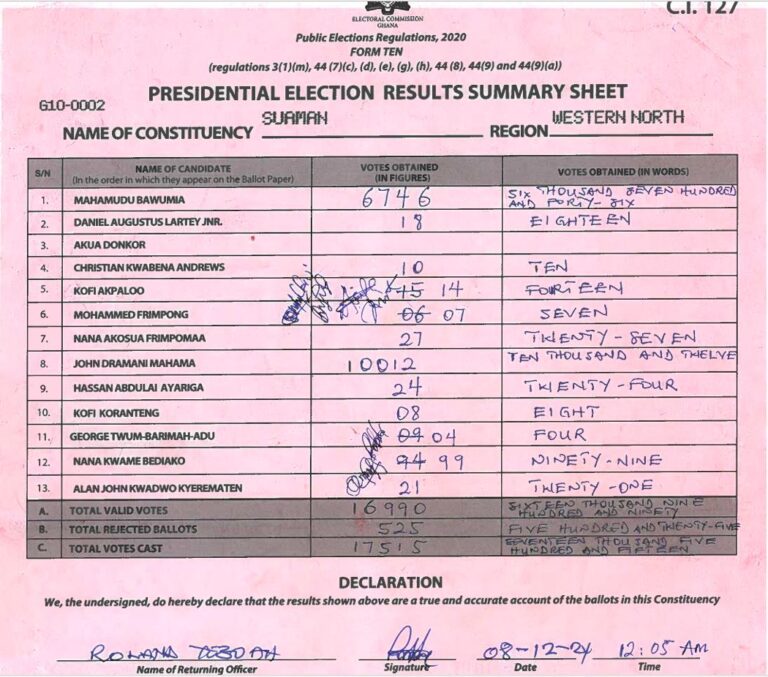 C.I. 127
ELECTORAL COMMISSION
GHANA
Public Elections Regulations, 2020
FORM TEN
(regulations 3(1)(m), 44 (7)(c), (d), (e), (g), (h), 44 (8), 44(9) and 44(9)(a))
PRESIDENTIAL ELECTION RESULTS SUMMARY SHEET
G10-0002
NAME OF CONSTITUENCY SUAMAN REGION WESTERN NORTH
S/N NAME OF CANDIDATE VOTES OBTAINED VOTES OBTAINED (IN WORDS)
(In the order in which they appear on the Ballot Paper) (IN FIGURES)
1. MAHAMUDU BAWUMIA 6746 SIX THOUSAND SEVEN HUNDRED
AND FORTY-SIX
2. DANIEL AUGUSTUS LARTEY JNR. 18 EIGHTEEN
3. AKUA DONKOR
4. CHRISTIAN KWABENA ANDREWS 10 TEN
5. KOFI AKPALOO 45 14 FOURTEEN
6. MOHAMMED FRIMPONG 06 07 SEVEN
7. NANA AKOSUA FRIMPOMAA 27 TWENTY-SEVEN
8. JOHN DRAMANI MAHAMA 10012 TEN THOUSAND AND TWELVE
9. HASSAN ABDULAI AYARIGA 24 TWENTY-FOUR
10. KOFI KORANTENG 08 EIGHT
11. GEORGE TWUM-BARIMAH-ADU 04 FOUR
12. NANA KWAME BEDIAKO 94 99 NINETY-NINE
13. ALAN JOHN KWADWO KYEREMATEN 21 TWENTY-ONE
A. TOTAL VALID VOTES 16990 SIXTEEN THOUSAND NINE
HUNDRED AND NINETY
B. TOTAL REJECTED BALLOTS 525 FIVE HUNDRED AND TWENTY-FIVE
C. TOTAL VOTES CAST 17515 SEVENTEEN THOUSAND FIVE
HUNDRED AND FIFTEEN
DECLARATION
We, the undersigned, do hereby declare that the results shown above are a true and accurate account of the ballots in this Constituency
08-12-24 12:05 AM
Name of Returning Officer Signature Date Time